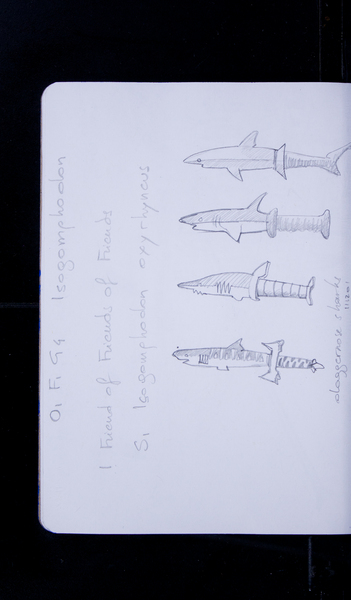 O, F, G, Isogomphodon
1 Friend of Friends of Friends
S, Isogomphodon oxyrhyncus
daggernose sharks